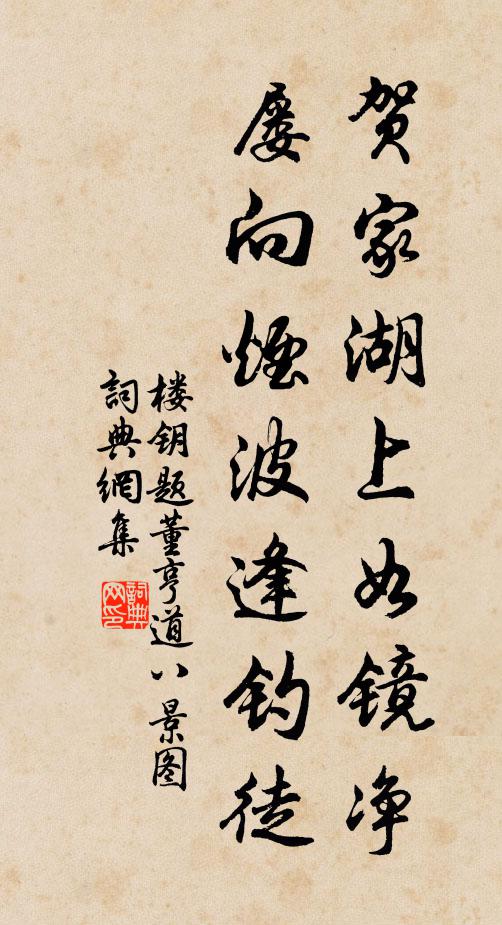 贺家湖上如镜净
屡向烟波逢钓徒
楼钥题董亨道八景图
詞典網集
詞典网印